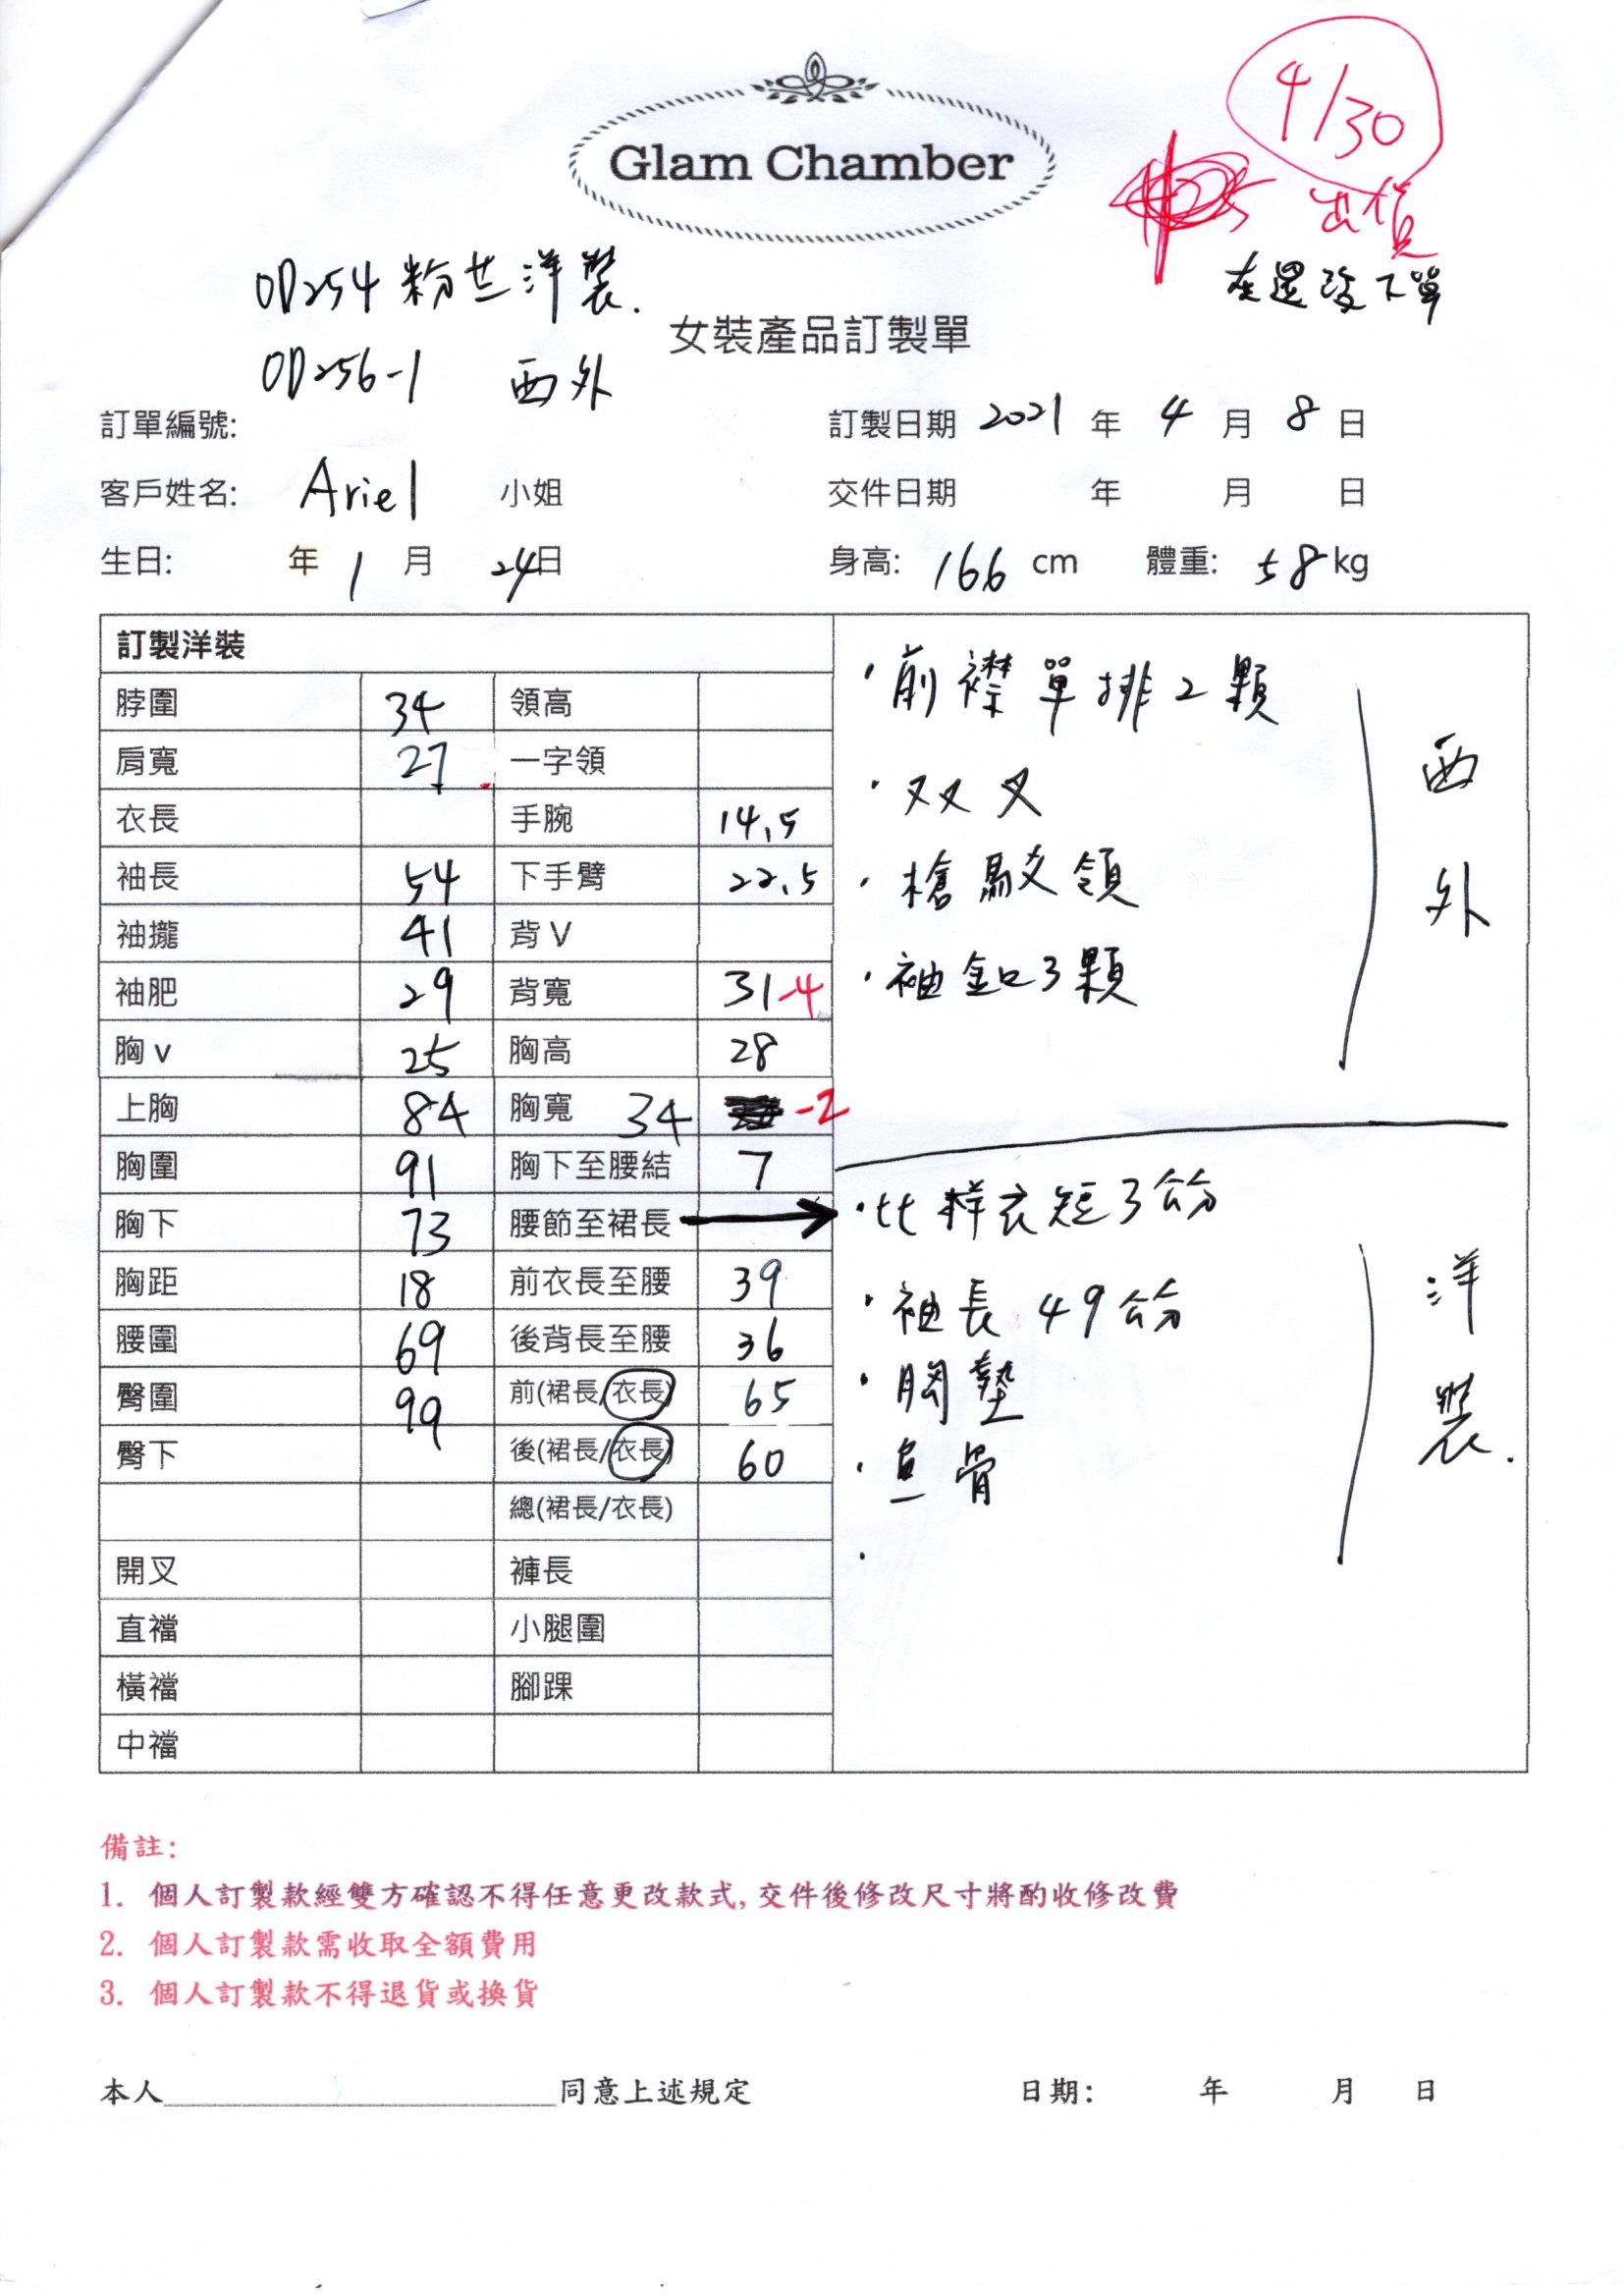 Glam Chamber
4/30
出貨
在還沒下單
OD254 粉芷洋裝.
女裝產品訂製單
OD256-1 西外
訂單編號: 訂製日期 2021 年 4 月 8 日
客戶姓名: Ariel 小姐 交件日期 年 月 日
生日: 年 1 月 24日 身高: 166 cm 體重: 58 kg
訂製洋裝
脖圍 34 領高
肩寬 27 一字領
衣長 手腕 14.5
袖長 54 下手臂 22.5
袖攏 41 背 V
袖肥 29 背寬 31 -4
胸 v 25 胸高 28
上胸 84 胸寬 34 -2
胸圍 91 胸下至腰結 7
胸下 73 腰節至裙長
胸距 18 前衣長至腰 39
腰圍 69 後背長至腰 36
臀圍 99 前(裙長/衣長) 65
臀下 後(裙長/衣長) 60
總(裙長/衣長)
開叉 褲長
直襠 小腿圍
橫襠 腳踝
中襠
·前襟單排2顆
·双叉
·槍駁領
·袖釦3顆
西外
·比样衣短3公分
·袖長 49公分
·胸墊
·鱼骨
·
洋裝.
備註:
1. 個人訂製款經雙方確認不得任意更改款式,交件後修改尺寸將酌收修改費
2. 個人訂製款需收取全額費用
3. 個人訂製款不得退貨或換貨
本人 同意上述規定 日期: 年 月 日